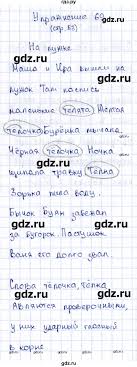 Упражнение 69
(стр. 58)
На лужке
Маша и Ира вышли на
лужок. Там паслись
маленькие телята Жёлтая
телочка Бурёнка мычала.
Чёрная телочка Ночка
щипала травку Тёлка
Зорька пила воду.
Бычок Буян убежал
за бугорок. Пастушок
Ваня его долго звал.
Слова тёлочка, тёлка
являются проверочными,
у них ударный гласный
в корне
gdz.ru
gdz.ru
gdz.ru
gdz.ru
gdz.ru
gdz.ru